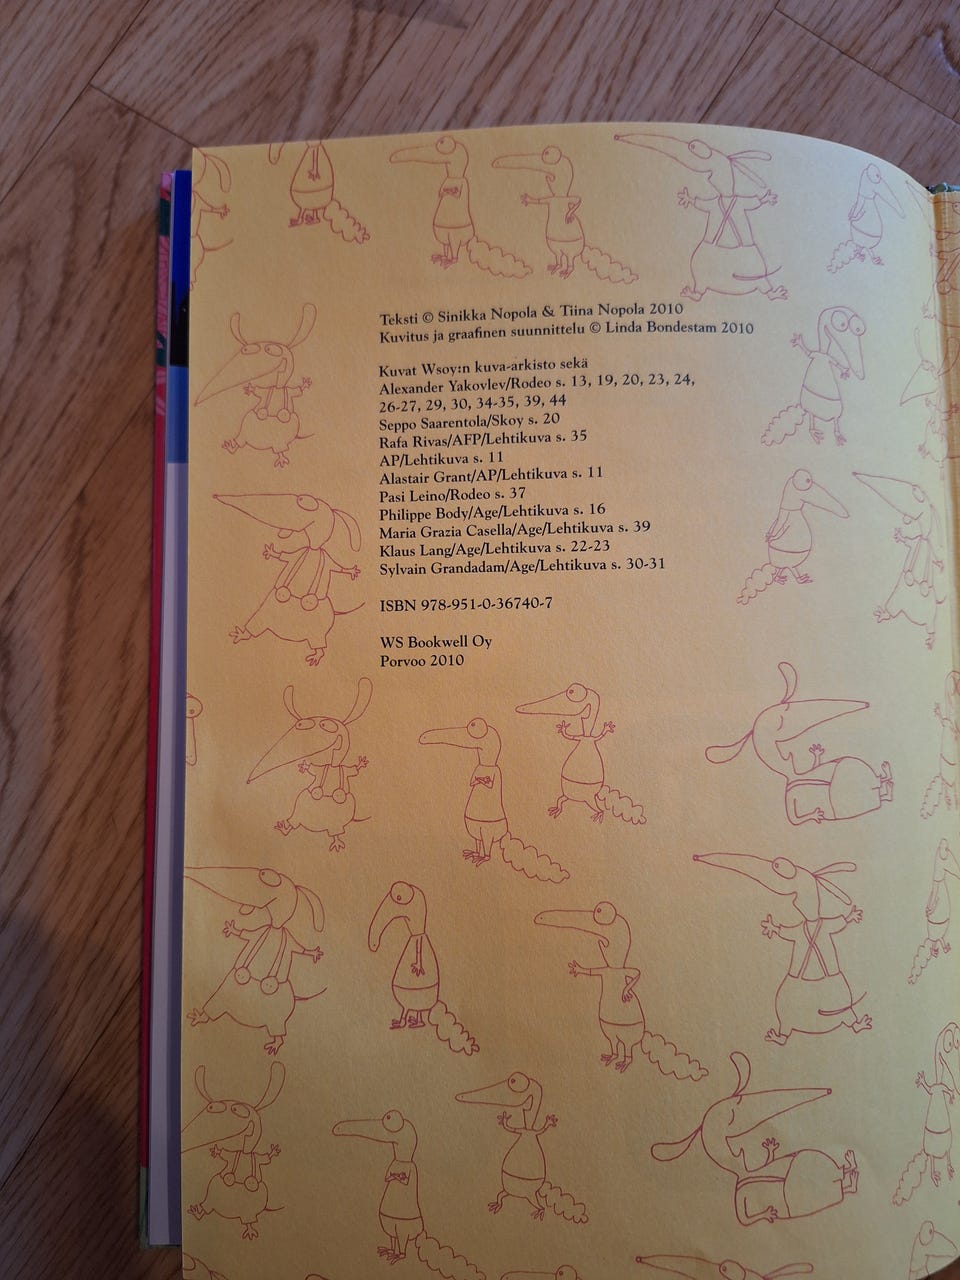 Teksti © Sinikka Nopola & Tiina Nopola 2010
Kuvitus ja graafinen suunnittelu © Linda Bondestam 2010
Kuvat Wsoy:n kuva-arkisto sekä
Alexander Yakovlev/Rodeo s. 13, 19, 20, 23, 24,
26-27, 29, 30, 34-35, 39, 44
Seppo Saarentola/Skoy s. 20
Rafa Rivas/AFP/Lehtikuva s. 35
AP/Lehtikuva s. 11
Alastair Grant/AP/Lehtikuva s. 11
Pasi Leino/Rodeo s. 37
Philippe Body/Age/Lehtikuva s. 16
Maria Grazia Casella/Age/Lehtikuva s. 39
Klaus Lang/Age/Lehtikuva s. 22-23
Sylvain Grandadam/Age/Lehtikuva s. 30-31
ISBN 978-951-0-36740-7
WS Bookwell Oy
Porvoo 2010